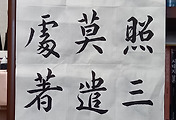 照三
莫遣
處著